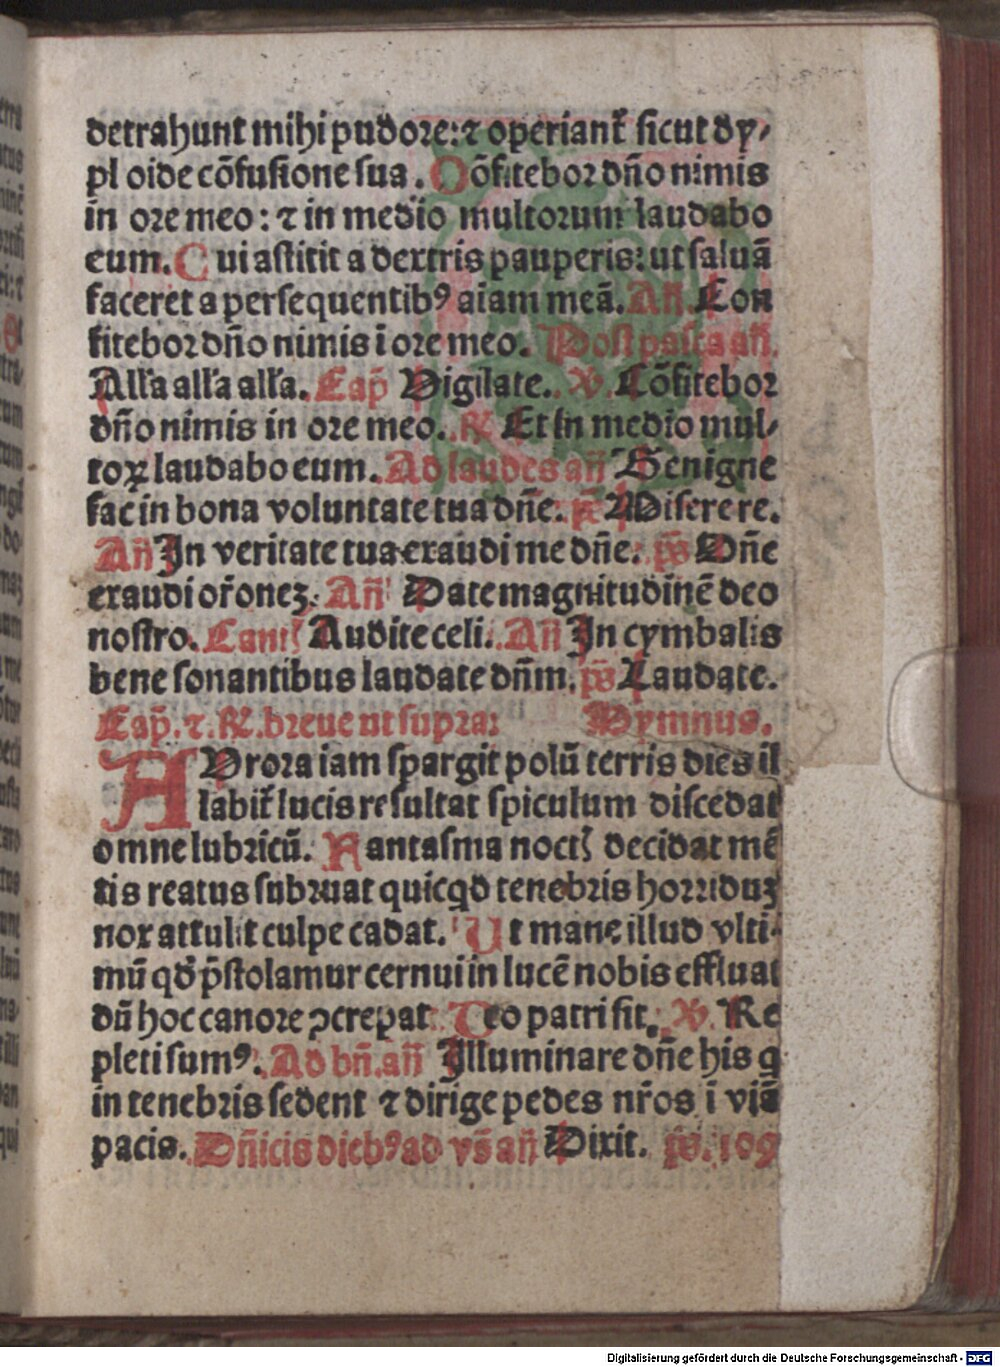 detrahunt mihi pudore: ⁊ operiant᷑ sicut dy-
pl oide cõfusione sua. Cõfitebor dño nimis
in ore meo: ⁊ in medio multorum laudabo
eum. Cui astitit a dextris pauperis: ut saluã
faceret a persequentibꝰ aĩam meã. Añ. Con
fitebor dño nimis ĩ ore meo. Post pasca añ.
Alľa alľa alľa. Cap̃ Vigilate. ℣. Cõfitebor
dño nimis in ore meo. ℟ Et in medio mul-
toꝝ laudabo eum. Ad laudes añ Benigne
fac in bona voluntate tua dñe. ps̃ Miserere.
Añ In veritate tua exaudi me dñe. ps̃ Dñe
exaudi or̃oneȝ. Añ Date magnitudinẽ deo
nostro. Cantꝭ Audite celi. Añ In cymbalis
bene sonantibus laudate dñm. ps̃ Laudate.
Cap̃. ⁊. ℟. breue ut supra: Hymnus.
AVrora iam spargit polũ terris dies il
labit᷑ lucis resultat spiculum discedat
omne lubricũ. Fantasma noctꝭ decidat mẽ
tis reatus subruat quicqͥd tenebris horriduȝ
nox attulit culpe cadat. Ut mane illud vlti-
mũ qď p̃stolamur cernui in lucẽ nobis effluat
dũ hoc canore ꝯcrepat Deo patri sit. ℣. Re
pleti sumꝰ. Ad bñ. añ Illuminare dñe his q
in tenebris sedent ⁊ dirige pedes nr̃os ĩ viã
pacis. Dñicis diebꝰ ad vs̃ añ Dixit. ps̃. 109
Digitalisierung gefördert durch die Deutsche Forschungsgemeinschaft - DFG